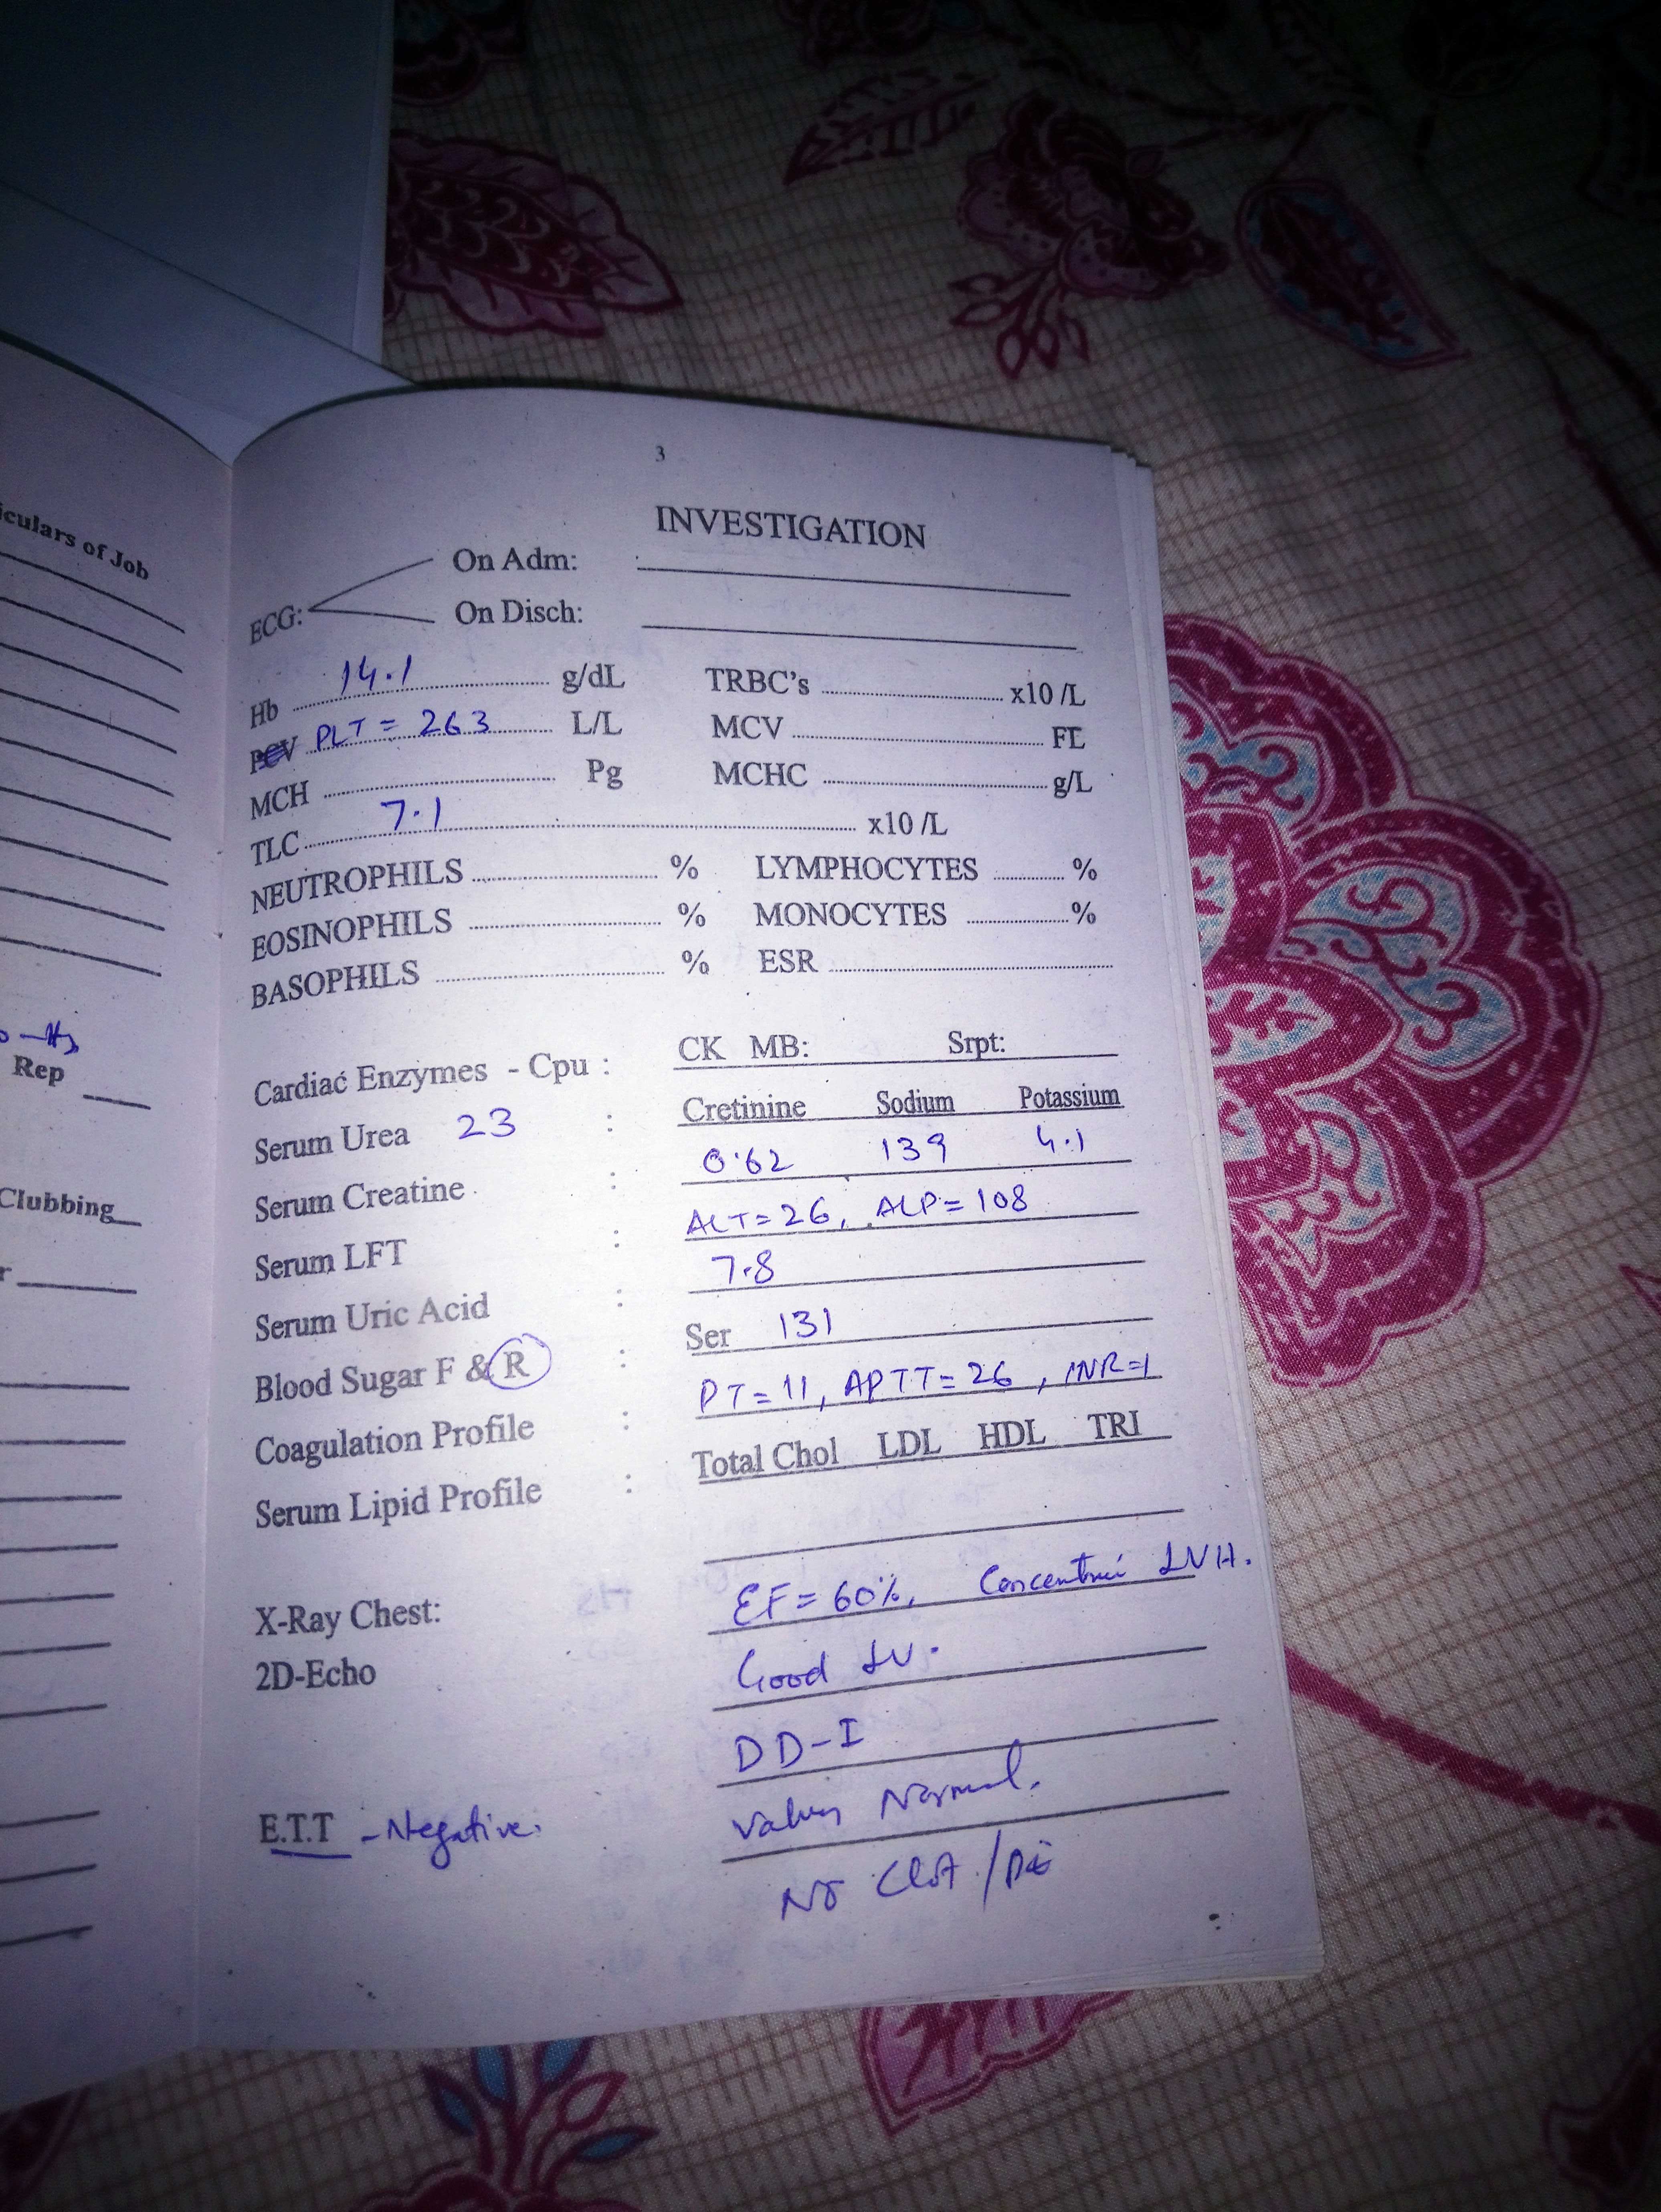 iculars of Job
Rep
Clubbing
3
INVESTIGATION
ECG: On Adm:
On Disch:
Hb 14.1 g/dL TRBC's x10 /L
PCV PLT = 263 L/L MCV FL
MCH Pg MCHC g/L
TLC 7.1 x10 /L
NEUTROPHILS % LYMPHOCYTES %
EOSINOPHILS % MONOCYTES %
BASOPHILS % ESR
Cardiac Enzymes - Cpu : CK MB: Srpt:
Serum Urea 23 : Cretinine Sodium Potassium
Serum Creatine : 0.62 139 4.1
Serum LFT : ALT=26, ALP=108
Serum Uric Acid : 7.8
Blood Sugar F & R : Ser 131
Coagulation Profile : PT=11, APTT=26, INR=1
Serum Lipid Profile : Total Chol LDL HDL TRI
X-Ray Chest: EF=60%, Concentric LVH.
2D-Echo Good LV.
DD-I
E.T.T - Negative. Valves Normal.
No Clot /